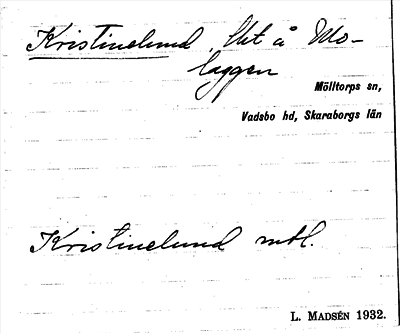 Kristinelund, lht å Mo-
laggen
Mölltorps sn,
Vadsbo hd, Skaraborgs län
Kristinelund mtl.
L. MADSÉN 1932.